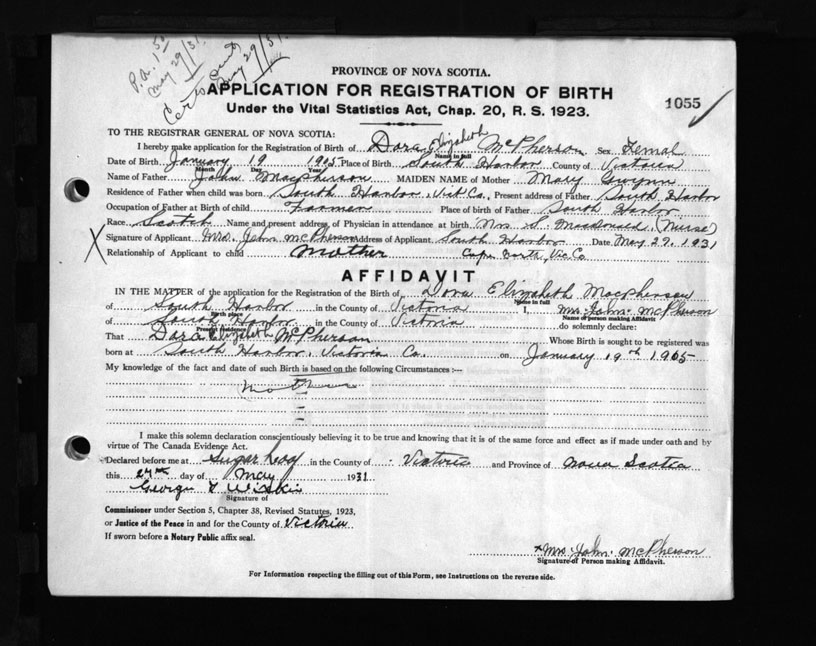 P.A. 1.50
May 29/31.
Certs Sent
May 29/31.
PROVINCE OF NOVA SCOTIA.
APPLICATION FOR REGISTRATION OF BIRTH
1055
Under the Vital Statistics Act, Chap. 20, R. S. 1923.
TO THE REGISTRAR GENERAL OF NOVA SCOTIA:
I hereby make application for the Registration of Birth of Dora Elizabeth McPherson Sex Femal
Name in full
Date of Birth January 19 1905 Place of Birth South Harbor County of Victoria
Month Day Year
Name of Father John Macpherson MAIDEN NAME of Mother Mary Gwynn
Residence of Father when child was born South Harbor, Vict Co., Present address of Father South Harbor
Occupation of Father at Birth of child Farmer Place of birth of Father South Harbor
Race Scotch Name and present address of Physician in attendance at birth Mrs S. Macdonald (Nurse)
X Signature of Applicant Mrs. John McPherson Address of Applicant South Harbor Date May 27. 1931
Relationship of Applicant to child Mother Cape North, Vic. Co
AFFIDAVIT
IN THE MATTER of the application for the Registration of the Birth of Dora Elizabeth Macpherson
Name in full
of South Harbor in the County of Victoria I, Mrs. John McPherson
Birth place Name of person making Affidavit
of South Harbor in the County of Victoria do solemnly declare:
Present residence
That Dora Elizabeth McPherson Whose Birth is sought to be registered was
born at South Harbor, Victoria Co. on January 19th 1905
My knowledge of the fact and date of such Birth is based on the following Circumstances :—
Mother
I make this solemn declaration conscientiously believing it to be true and knowing that it is of the same force and effect as if made under oath and by
virtue of The Canada Evidence Act.
Declared before me at Sugar Loaf in the County of Victoria and Province of Nova Scotia
this 27th day of May 1931
George
Signature of
Commissioner under Section 5, Chapter 38, Revised Statutes, 1923,
or Justice of the Peace in and for the County of Victoria
If sworn before a Notary Public affix seal.
x Mrs. John. McPherson
Signature of Person making Affidavit.
For Information respecting the filling out of this Form, see Instructions on the reverse side.